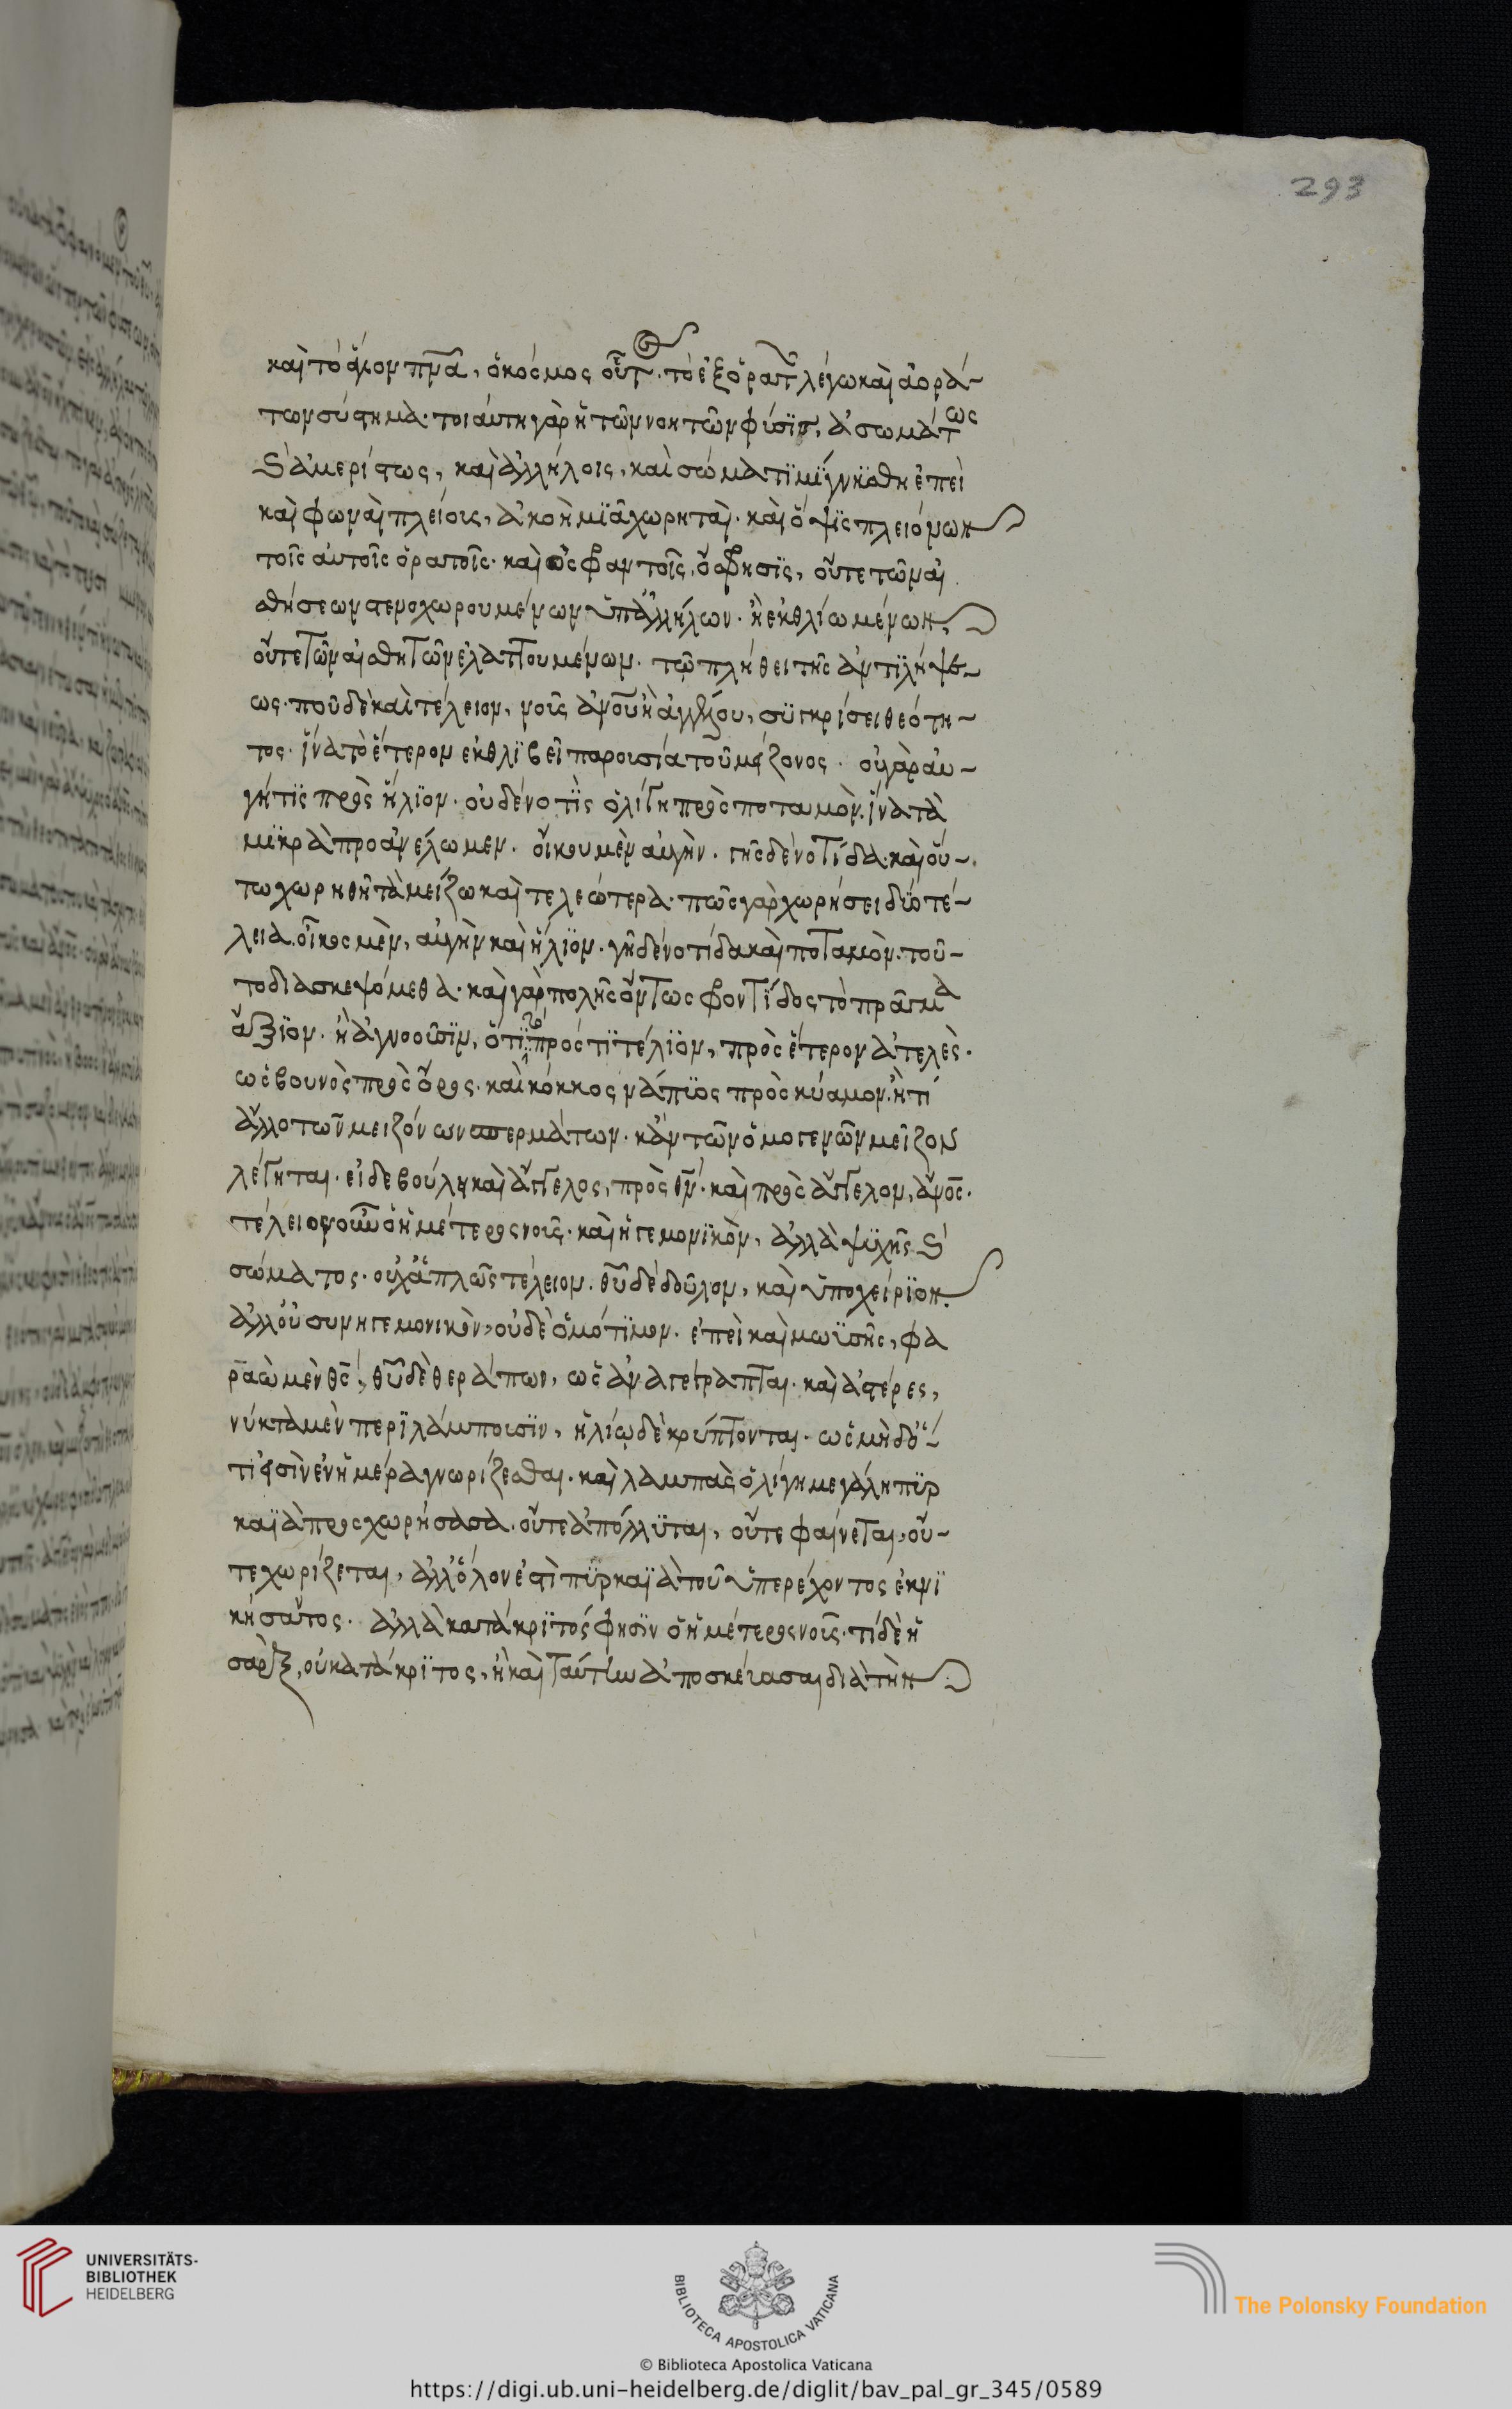 καὶ τὸ ἅγιον πνα, ὁ κόσμος οὗτ. τὸ ἐξ ὁρατ λέγω καὶ ἀορά-
των σύστημα· τοιαύτη γὰρ ἡ τῶν νοητῶν φύσϊς, ἀσωμάτως
καὶ ἀμερίστως, καὶ ἀλλήλοις, καὶ σώματϊ μίγνησθη ἐπεὶ
καὶ φωναὶ πλείους, ἀκοὴ μϊᾶ χωρηταὶ· καὶ ὄψϊς πλειόνων
τοῖς αὐτοῖς ὁρατοῖς· καὶ ὀσφραντοῖς, ὄσφρησϊς, οὔτε τῶν αἰ
σθήσεων στενοχωρουμένων ὑπ' ἀλλήλων· ἢ ἐκθλίωμένων,
οὔτε τῶν αἰσθητῶν ἐλαττουμένων· τῷ πλήθει τῆς ἀντϊλήψε-
ως· ποῦ δὲ καὶ τέλειον, νοῦς ἀνοῦ ἢ ἀγγέλου, συγκρίσει θεότη-
τος· ἵνα τὸ ἕτερον ἐκθλϊβεῖ παρουσία τοῦ μείζονος· οὐ γὰρ αὐ-
γή τϊς πρὸς ἥλϊον· οὐδὲ νοτϊς ὀλίγη πρὸς ποταμὸν. ἵνα τὰ
μϊκρὰ προανέλωμεν· οἴκου μὲν αὐγὴν· γῆς δὲ νοτίδα· καὶ οὕ-
τω χωρηθῆ τὰ μείζω καὶ τελεώτερα· πῶς γὰρ χωρήσει δϊο τέ-
λεια. οἶκος μὲν, αὐγὴν καὶ ἥλϊον· γῆ δὲ νοτίδα καὶ ποταμὸν· τοῦ-
το διασκεψόμεθα· καὶ γὰρ πολῆς ὄντως φροντΐδος τὸ πρᾶγμα
ἄξϊον· ἢ ἀγνοοῦσϊν, ὅτϊ τὸ πρός τϊ τέλϊον, πρὸς ἕτερον ἀτελὲς·
ὡς βουνὸς πρὸς ὄρος· καὶ κόκκος νάπϊος πρὸς κύαμον. ἤ τι
ἄλλο τῶν μειζόνων σπερμάτων· κἂν τῶν ὁμογενῶν μεῖζον
λέγηται· εἰ δὲ βούλη καὶ ἄγγελος, πρὸς θν· καὶ πρὸς ἄγγελον, ἄνος·
τέλειον οὖν ὁ ἡμέτερος νοῦς· καὶ ἡγεμονϊκὸν, ἀλλὰ ψυχῆς καὶ
σώματος· οὐχ ἁπλῶς τέλειον· θυ δὲ δοῦλον, καὶ ὑποχείρϊον.
ἀλλ' οὐ συνηγεμονικὸν, οὐδὲ ὁμότϊμον· ἐπεὶ καὶ μωϋσῆς, φα
ραὼ μὲν θς, θυ δὲ θεράπων, ὡς ἀναγέγραπται· καὶ ἀστέρες,
νύκτα μὲν περϊλάμπουσϊν, ἡλίῳ δὲ κρύπτονται· ὡς μὴ δ' ὅ-
τι εἰσὶν ἐν ἡμέρα γνωρίζεσθαι· καὶ λαμπὰς ὀλίγη μεγάλη πϋρ
καϊὰ προσχωρήσασα· οὔτε ἀπόλλϋται, οὔτε φαίνεται, οὔ-
τε χωρίζεται, ἀλλ' ὅλον ἐστὶ πϋρκαϊὰ τοῦ ὑπερέχοντος ἐκνϊ
κήσαντος· ἀλλὰ κατάκρϊτός φησϊν ὁ ἡμέτερος νοῦς· τί δὲ ἡ
σὰρξ, οὐ κατάκρϊτος, ἢ καὶ ταύτην ἀποσκέυασαι διὰ τὴν
293
UNIVERSITÄTS-
BIBLIOTHEK
HEIDELBERG
BIBLIOTECA APOSTOLICA VATICANA
The Polonsky Foundation
© Biblioteca Apostolica Vaticana
https://digi.ub.uni-heidelberg.de/diglit/bav_pal_gr_345/0589